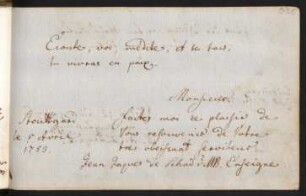 Ecoute, voi, medite, et te tais,
tu vivras en paix.
Monsieur
Stouttgard
le 5 Avril
1759
faites moi ce plaisir de
Vous resouvenir de Votre
très obeissant serviteur
Jean Jaques de Enseigne